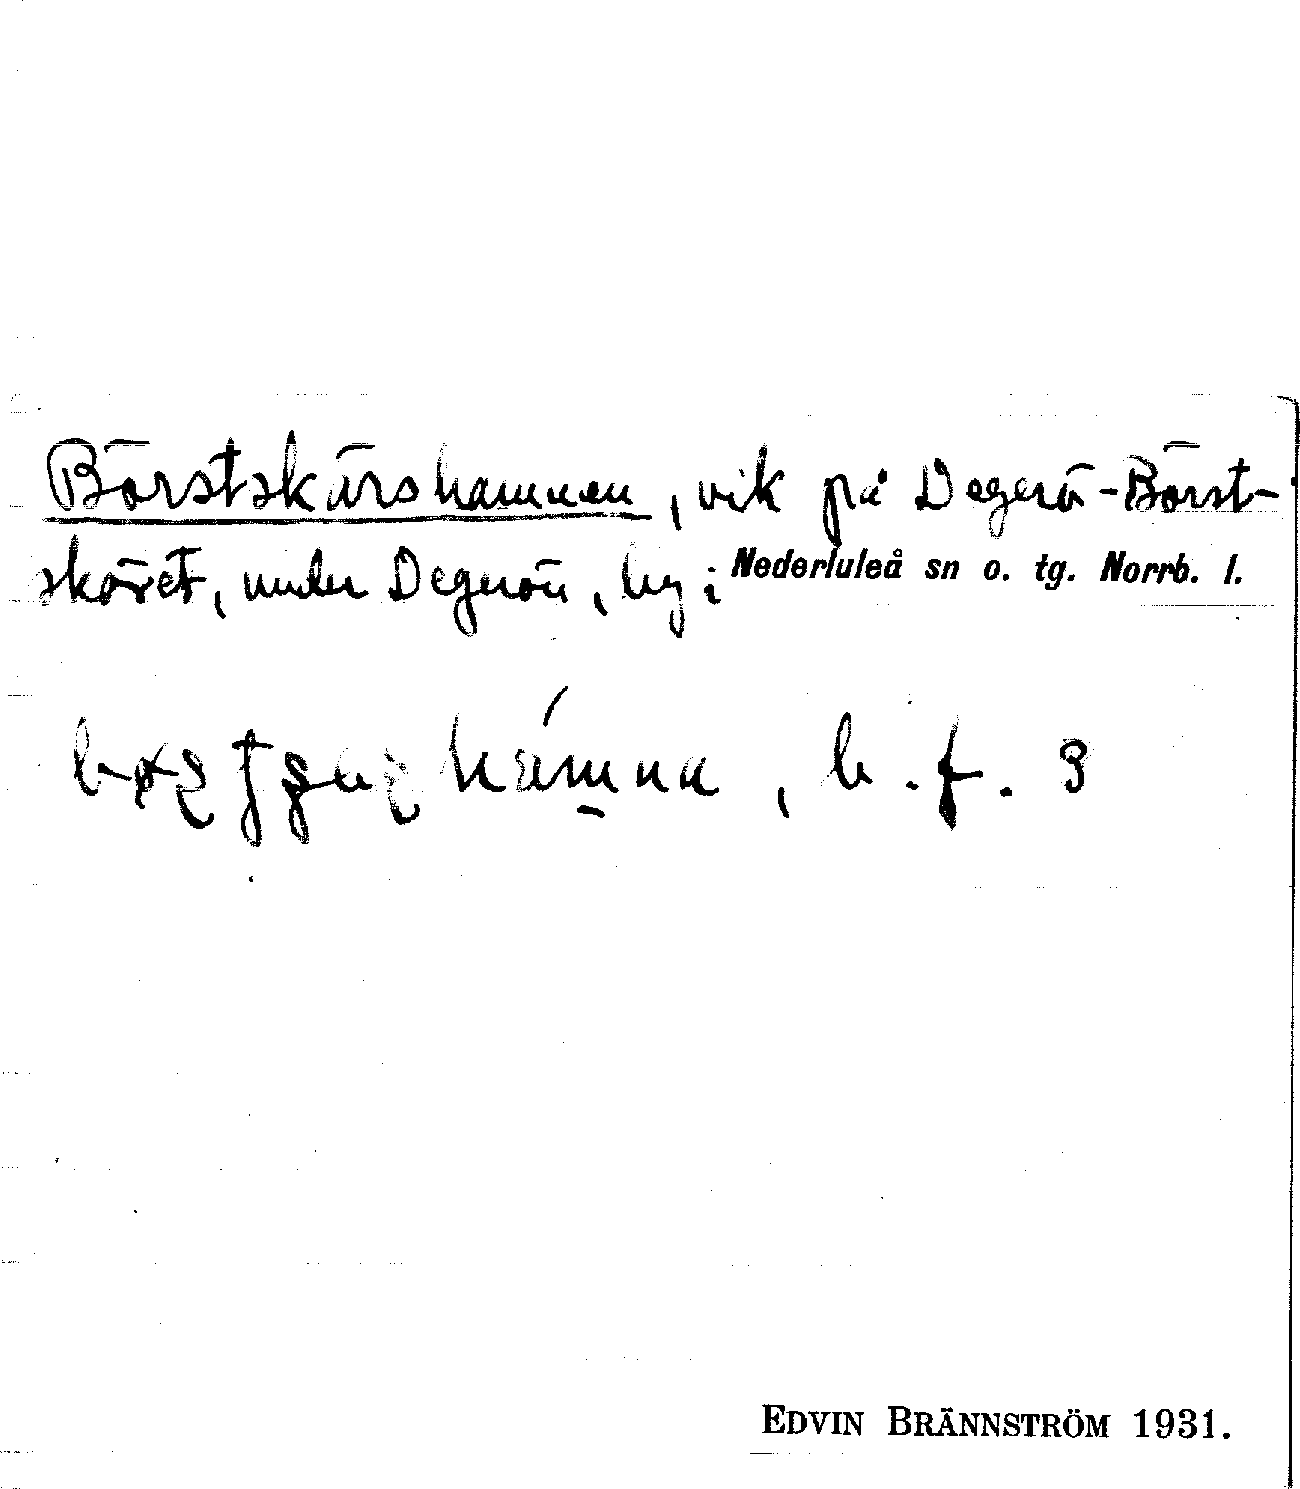 Börstskärshamnen, vik på Degerö-Börst-
skäret, under Degerön, by i Nederluleå sn o. tg. Norrb. l.
b. f. 3
EDVIN BRÄNNSTRÖM 1931.